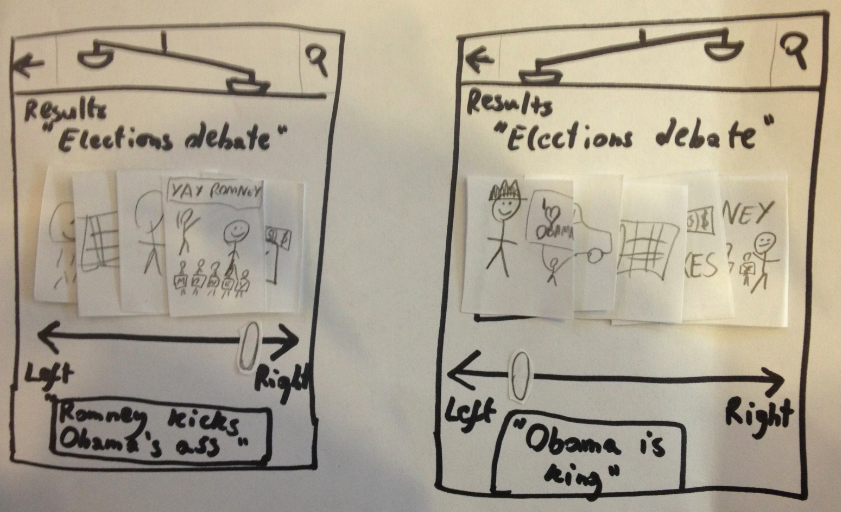 Results
"Elections debate"
YAY ROMNEY
Left
Right
"Romney kicks
Obama's ass"
Results
"Elections debate"
I
OBAMA
NEY
KES
Left
Right
"Obama is
king"